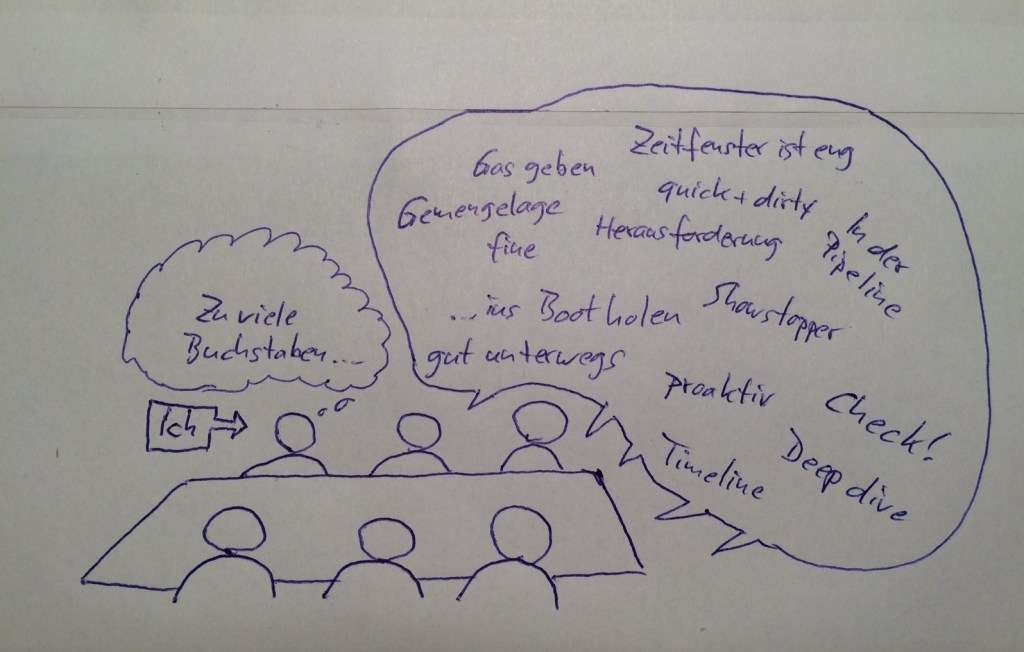 Zeitfenster ist eng
Gas geben
quick + dirty
Gemengelage
Herausforderung
In der
Pipeline
fine
Zu viele
Buchstaben...
...ins Boot holen
Showstopper
gut unterwegs
proaktiv
Check!
Ich
Timeline
Deep dive